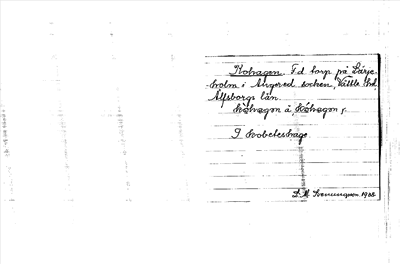 Kohagen. Fd torp på Lärje-
holm i Angered socken, Vättle hd
Älfsborgs län.
Kohagen å, Kohagen,
I Kobeteshage
D. M. Svenungsson 1938